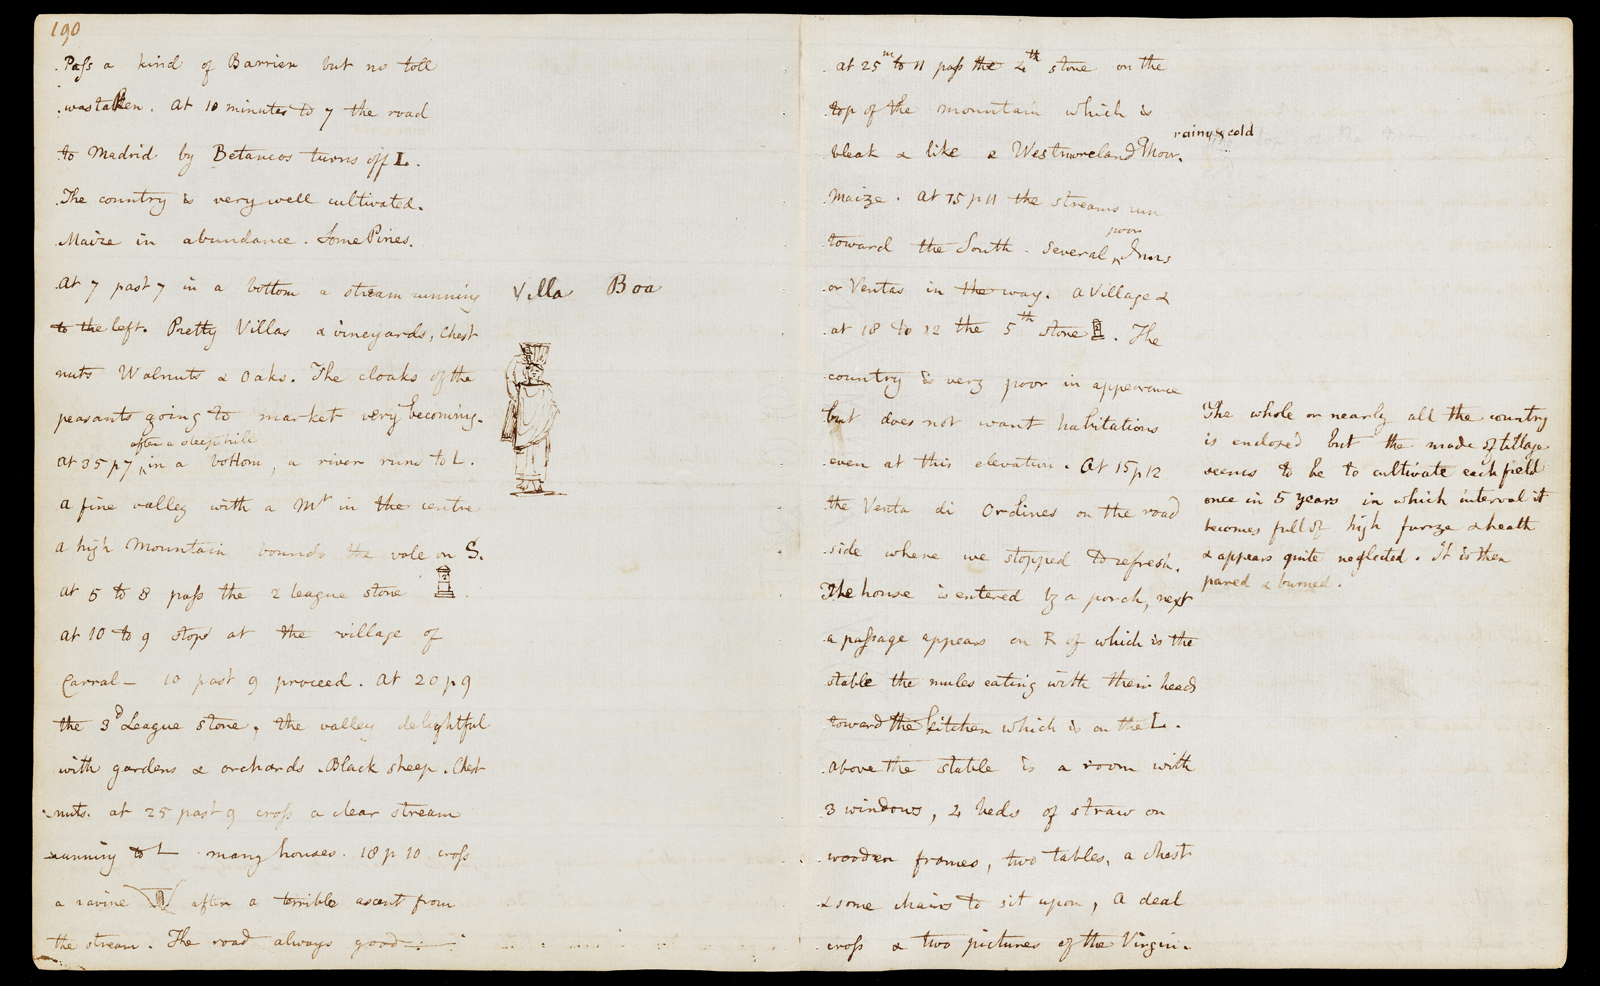 190
Pass a kind of Barrier but no toll
was taken. At 10 minutes to 7 the road
to Madrid by Betancos turns off L.
The country is very well cultivated.
Maize in abundance. Some Pines.
At 7 past 7 in a bottom a stream running
to the left. Pretty Villas & vineyards, Chest
nuts Walnuts & Oaks. The cloaks of the
peasants going to market very becoming.
after a steep hill
At 35 p 7 in a bottom, a river runs to L.
a fine valley with a Mt in the centre
a high Mountain bounds the vale on S.
at 5 to 8 pass the 2 league stone
at 10 to 9 stop at the village of
Carral - 10 past 9 proceed. At 20 p 9
the 3d League stone, the valley delightful
with gardens & orchards. Black sheep. Chest
nuts. at 25 past 9 cross a clear stream
running to L many houses. 18 p 10 cross
a ravine after a terrible ascent from
the stream. The road always good
Villa Boa
at 25m to 11 pass the 4th stone on the
top of the mountain which is
rainy & cold
bleak & like a Westmoreland Moor.
Maize. At 15 p 11 the streams run
poor
toward the South. Several Inns
or Ventas in the way. A Village &
at 18 to 12 the 5th stone. The
country is very poor in appearance
but does not want habitations
even at this elevation. At 15 p 12
the Venta di Ordines on the road
side where we stopped to refresh.
The house is entered by a porch, next
a passage appears on R of which is the
stable the mules eating with their heads
toward the kitchen which is on the L.
above the stable is a room with
3 windows, 4 beds of straw on
wooden frames, two tables, a chest
& some chairs to sit upon, A deal
cross & two pictures of the Virgin.
The whole or nearly all the country
is enclosed but the mode of tillage
seems to be to cultivate each field
once in 5 years in which interval it
becomes full of high furze & heath
& appears quite neglected. It is then
pared & burned.